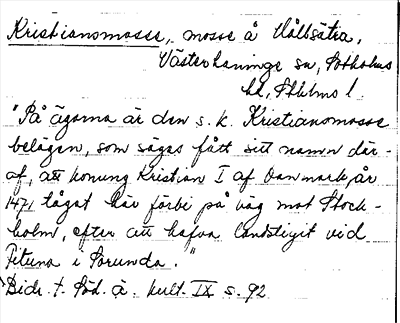 Kristiansmosse, mosse å Vålbsätra,
Västerhaninge sn, Sotholms
hd, Sthlms l.
"På ägorna är den s. k. Kristiansmosse
belägen, som säges fått sitt namn där-
af, att konung Kristian I af Danmark, år
1471 tågat här förbi på väg mot Stock-
holm, efter att hafva landstigit vid
Fituna i Sorunda."
Bidr. t. Söd. ä. kult. IX s. 92